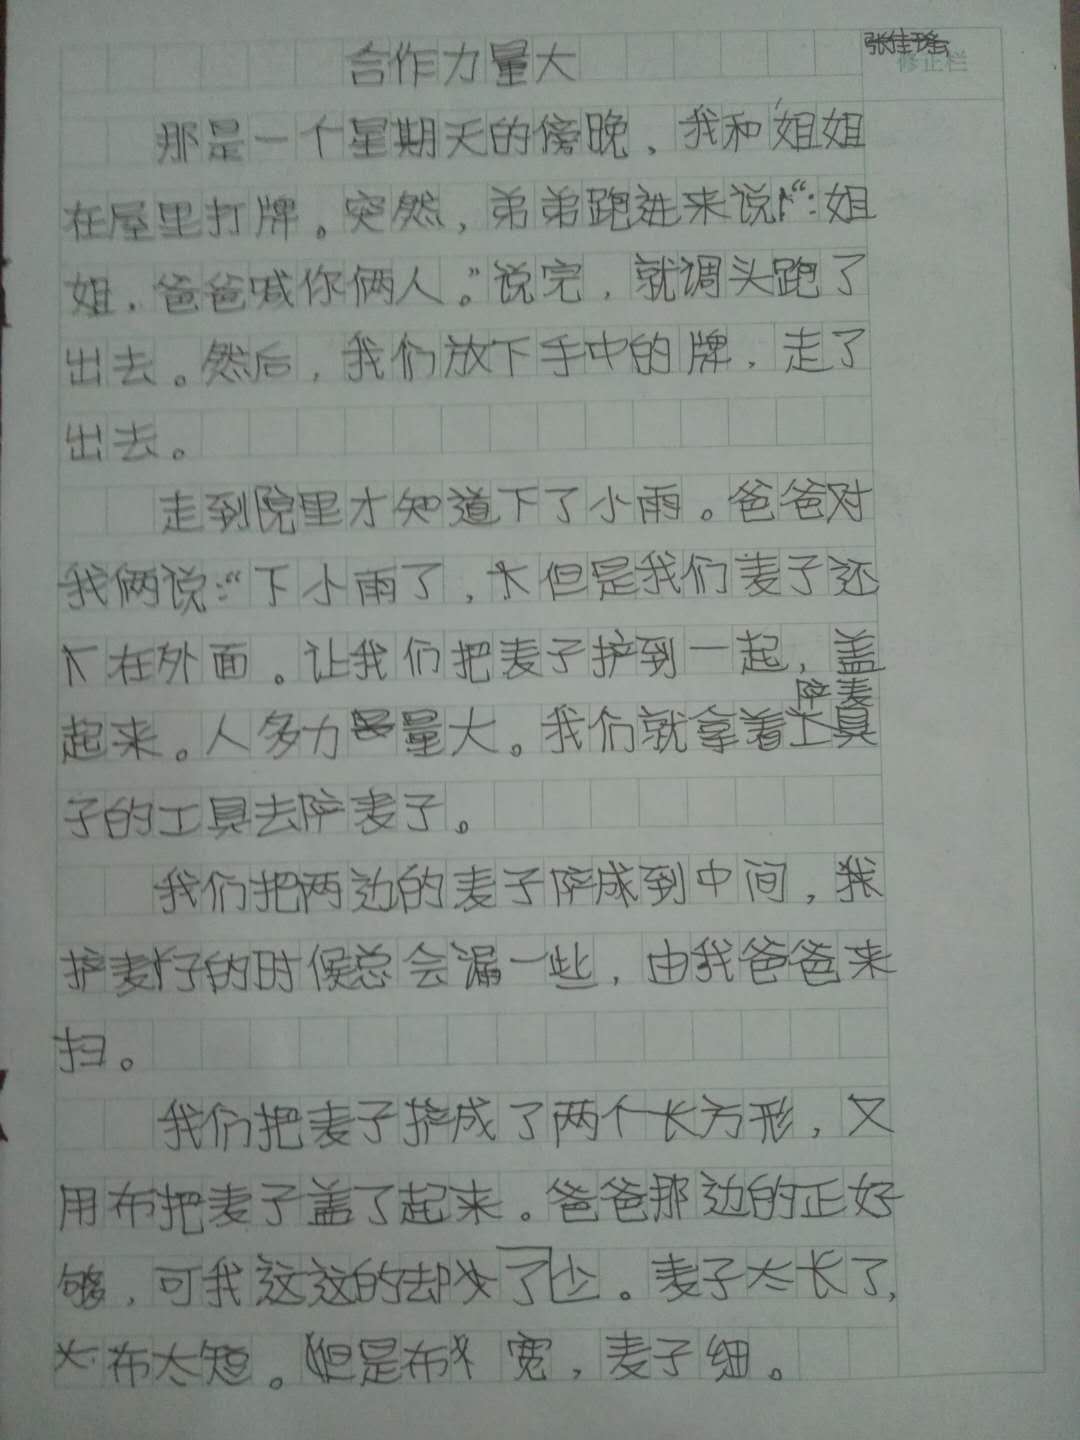 合作力量大
修正栏
那是一个星期天的傍晚，我和姐姐
在屋里打牌。突然，弟弟跑进来说“：姐
姐，爸爸喊你俩人。”说完，就调头跑了
出去。然后，我们放下手中的牌，走了
出去。
走到院里才知道下了小雨。爸爸对
我俩说：“下小雨了，但是我们麦子还
在外面。让我们把麦子护到一起，盖
起来。人多力量大。我们就拿着
麦
子的工具去麦子。
我们把两边的麦子成到中间，我
护麦子的时候总会漏一些，由我爸爸来
扫。
我们把麦子挤成了两个长方形，又
用布把麦子盖了起来。爸爸那边的正好
够，可我这边的却少了。麦子太长了，
布太短。但是布宽，麦子细。